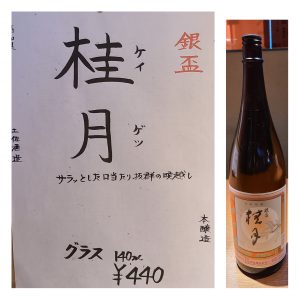 銀盃
桂月
ケイ
ゲツ
サラッとした口当たり、抜群の喉越し
土佐酒造
本醸造
グラス 140ml
¥440
桂月